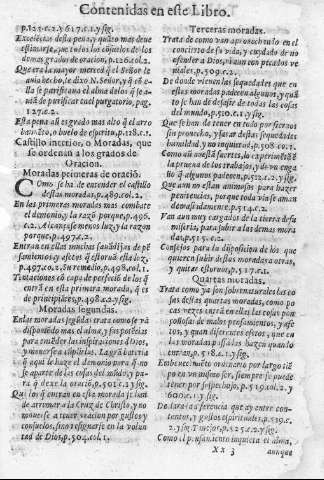 Contenidas en este Libro.
p.125.c.2. y 617.c.1. y sig.
Excelēcias desta pena, y quāto mas deue
estimarse, que todos los cōsuelos de los
demas grados de oracion, p.126.col.2.
Que era la mayor merced q̄ el Señor le
auia hecho, le dixo N. Señor, y q̄ cō e-
lla se purificaua el alma de lo q̄ se a-
uia de purificar en el purgatorio, pag.
127.c.2.
Esta pena assi es grado mas alto q̄ el arro
bamiēto, o buelo de espiritu, p.128.c.1.
Castillo interior, o Moradas, que
se ordenan a los grados de
Oracion.
Moradas primeras de oració.
Como se ha de entender el castillo
destas moradas, p.489.col.2.
En las primeras moradas mas combate
el demonio, y la razō porque, p.496.
c.2. Alcançase menos luz, y la razon
porque, p.497.c.2.
Entran en ellas muchas sauādijas de pē
samientos y afetos q̄ estoruā esta luz,
p.497.co.2. Su remedio, p.498.col.1.
Tētaciones cō capa de perfeciō de los q̄
entrā en esta primera morada, q̄ es
de principiātes, p.498.c.2. y sig.
Moradas segundas.
En las moradas segūdas trata como se va
disponiēdo mas el alma, y sus potēcias
para entēder las inspiraciones de Dios,
y mouerse a cūplirlas. La grā bateria
q̄ aqui le haze el demonio para q̄ no
se aparte de las cosas del mūdo, y pa-
ra q̄ dexe la oració, p.501.c.1. y sig.
Que los q̄ entran en esta morada se han
de arrimar a la Cruz de Christo, y no
mouerse a tener oracion por gustos y
consuelos, sino resignarse en la volun
tad de Dios, p.504.col.1.
Terceras moradas.
Trata de como van aprouechādo en el
concierto de su vida, y cuydado de no
ofender a Dios, ni aun con pecados ve
niales, p.509.c.2.
De donde vienen las sequedades que en
estas moradas padecen algunos, y quā
to se han de desasir de todas las cosas
del mundo, p.510.c.1. y sig.
Que se han de tener en todo por sieruos
sin prouecho, y sacar destas sequedades
humildad, y no inquietud, p.508.co.1.
Como aū en estas suertes, lo experimētā
la prueua de los trabajos, y de vn enga
ño q̄ algunos padecen, p.512.c.2. y sig.
Que aun no estan animosos para hazer
penitencias, porque toda via se aman
demasiadamente, p.514.c.2.
Van aun muy cargados de la tierra de su
miseria, para subir a las demas mora
das, p.515.c.2.
Consejos para la disposicion de los que
quieren subir destas moradas a otras,
y quitar estoruos, p.517.c.1.
Quartas moradas.
Trata como ya son sobrenaturales las co
sas destas quartas moradas, como po
cas vezes entrā en ellas las cosas pon-
çoñosas de malos pensamientos, y afe
tos, y quan diferentes efetos, que en
las moradas passadas hazen quando
entran, p.518.c.1. y sig.
Embeuecimiēto ordinario por largo tiē
po en vn mismo ser, siempre se puede
tener por sospechoso, p.519.col.2. y
600.c.1. y sig.
Declara la diferencia que ay entre con-
tentos, y gustos espirituales, p.519.c.
2. y sig. Y nuc.so, p.525.c.2. y sig.
Como el pensamiento inquieta el alma,
XX 3 aunque